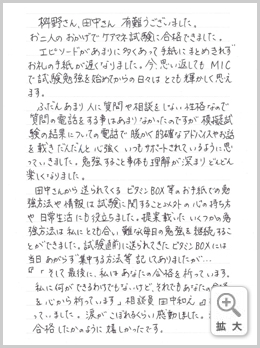 桝野さん、田中さん 有難うございました。
お二人のおかげでケアマネ試験に合格できました。
エピソードがあまりに多くあって手紙にまとめきれず
お礼の手紙が遅くなりました。今、思い返してもMIC
で試験勉強を始めてからの日々はとても輝かしく思え
ます。
ふだんあまり人に質問や相談をしない性格なので
質問の電話をする事はあまりなかったのですが模擬試
験の結果についての電話で 暖かく的確なアドバイスやお話
を頂きだんだんと心強く いつもサポートされているように思
っていきました。勉強すること事体も理解が深まりどんどん
楽しくなりました。
田中さんから送られてくるビタミンBOX等のお手紙での勉
強方法や情報は試験に関すること以外の心の持ち方
や日常生活にも役立ちました。提案頂いたいくつかの勉
強方法は私にとても合い、難なく毎日の勉強を継続するこ
とができました。試験直前に送られてきたビタミンBOXには
当日あわてず集中する方法等記してありましたが…
「そして最後に、私はあなたの合格を祈っています。
私に何ができるわけでもないけど、それでもあなたの合格
を心から祈っています」相談員 田中和
っていました。涙がこぼれるくらい感動しました。
合格したかのように嬉しかったです。
拡大